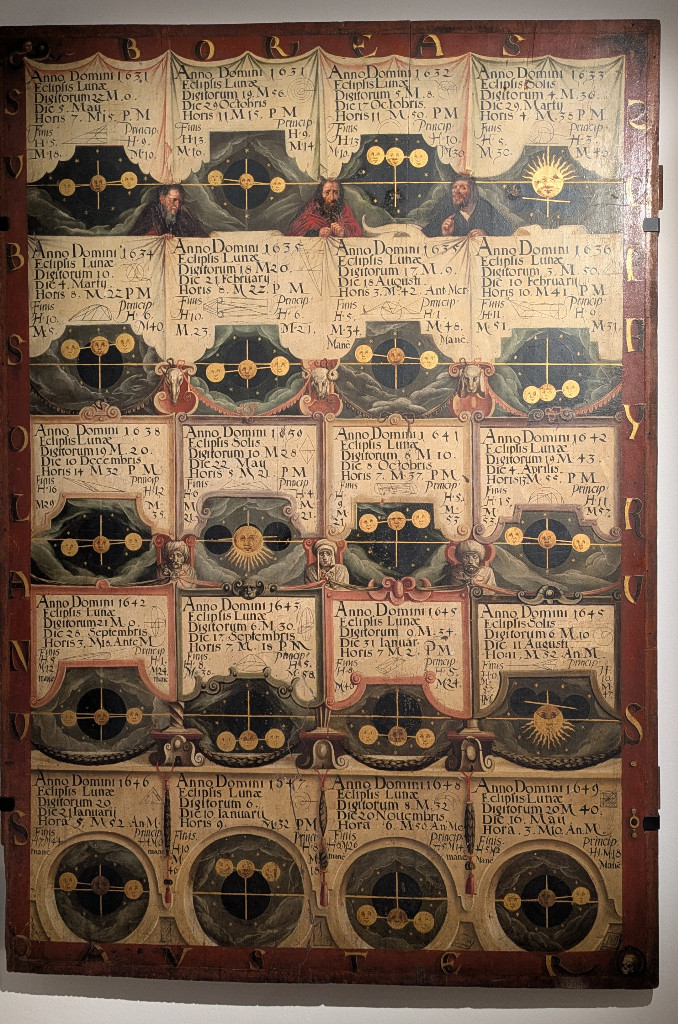 BOREAS
SVBSOLANVS
ZEPHYRVS
AVSTER
Anno Domini 1631
Eclipsis Lunæ
Digitorum 22 M. 0.
Die 5. May
Horis 7. M 15. P M
Finis Princip:
H. 5. H. 9.
M. 18. M. 10.
Anno Domini 1631
Eclipsis Lunæ
Digitorum 19 M 56.
Die 29 Octobris
Horis 11 M 15. P M
Finis Princip:
H. 13 H. 9.
M. 16. M 14
Anno Domini 1632
Eclipsis Lunæ
Digitorum 5. M. 8.
Die 17 Octobris.
Horis 11 M. 50. P M
Finis Princip:
H. 13 H. 10.
M. 10 M. 30
Anno Domini 1633
Eclipsis Solis
Digitorum 4 M. 36
Die 29. Martÿ
Horis 4 M. 38 P M
Finis Princip:
H. 5. H. 3.
M. 30. M. 43
Anno Domini 1634
Eclipsis Lunæ
Digitorum 10.
Die 4. Martÿ
Horis 8. M. 22 P M
Finis Princip:
H. 10. H. 6.
M. 5. M 40
Anno Domini 1635
Eclipsis Lunæ
Digitorum 18 M 20.
Die 21 Februarÿ
Horis 8 M. 22. P M
Finis Princip:
H. 10. H. 6.
M. 23. M. 21.
Anno Domini 1635
Eclipsis Lunæ
Digitorum 17 M. 0.
Die 18 Augusti
Horis 3. M. 42. Ant Mer
Finis Princip:
H. 5. H. 1.
M. 34. M. 48.
Mane Mane.
Anno Domini 1636
Eclipsis Lunæ
Digitorum 3. M. 50.
Die 10 Februarÿ
Horis 10 M. 41 P M
Finis Princip:
H. 11. H. 9.
M. 51. M. 31.
Anno Domini 1638
Eclipsis Lunæ
Digitorum 10 M. 20.
Die 10 Decembris
Horis 14 M. 32 P M
Finis Princip:
H. 16 H. 12
M 29 M. 35.
Eclipsis Solis
Digitorum 10 M 28
Die 22 May
Horis 5 M 21 P M
Finis Princip:
H. 4.
M. 21
Anno Domini 1641
Eclipsis Lunæ
Digitorum 8 M 10.
Die 8 Octobris
Horis 7 M. 37 P M.
Finis Princip:
H. 9 H. 5.
M. 21 M. 53
Anno Domini 1642
Eclipsis Lunæ
Digitorum 19 M 43.
Die 4 Aprilis
Horis 13 M 55. P M
Finis Princip:
H. 15. H. 11
M. 53 M. 57.
Anno Domini 1642
Eclipsis Lunæ
Digitorum 21 M. 0.
Die 28 Septembris
Horis 3. M 18. Ante M
Finis Princip:
H. 5 H. 1.
M. 12 M. 24.
mane mane
Anno Domini 1643
Eclipsis Lunæ
Digitorum 6. M. 30.
Die 17 Septembris
Horis 7. M. 18 P M
Finis Princip:
H. 8. H. 5.
M. 30 M. 58.
Anno Domini 1645
Eclipsis Lunæ
Digitorum 9. M. 34.
Die 31 Ianuar
Horis 7 M 2. P M
Finis Princip:
H. 8 H. 5.
M. 40. M 24.
Anno Domini 1645
Eclipsis Solis
Digitorum 6 M 10
Die 11 Augusti
Hori M. 32 An M
Finis Princip:
H. 0. H. 10.
M. 57.
Anno Domini 1646
Eclipsis Lunæ
Digitorum 20
Die 21 Ianuarÿ
Hora 5 M 52 An M
Finis Princip:
mane
Anno Domini 1647
Eclipsis Lunæ
Digitorum 6.
Die 10 Ianuarÿ
Horis 9. M 32 P M
Finis Princip:
H. 10 H. 8
Anno Domini 1648
Eclipsis Lunæ
Digitorum 8 M. 52
Die 20 Nouembris
Hora 6. M 56 An Me
Finis Princip:
mane mane
Anno Domini 1649
Eclipsis Lunæ
Digitorum 20 M 40.
Die 16. May
Hora. 3. M 10. An M.
Finis Princip:
H. 1. M. 18
Mane Mane